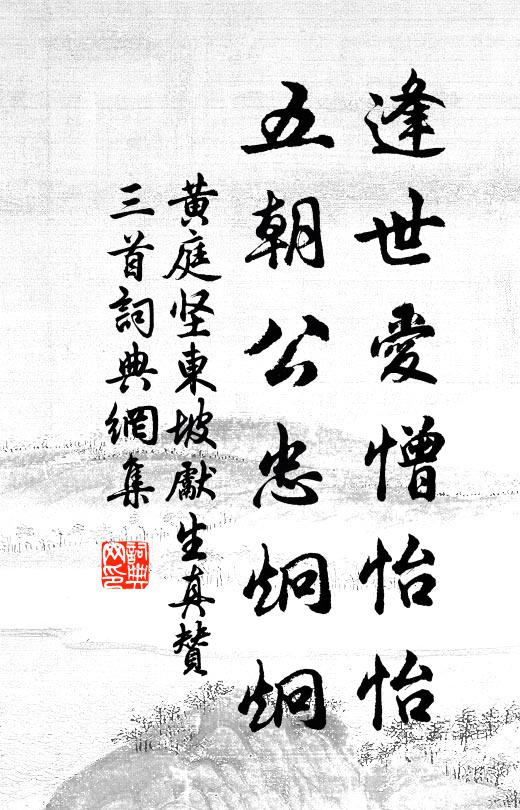 逢世愛憎怡怡
五朝公忠炯炯
黃庭坚東坡獻生真贊
三首詞典網集
詞典網印